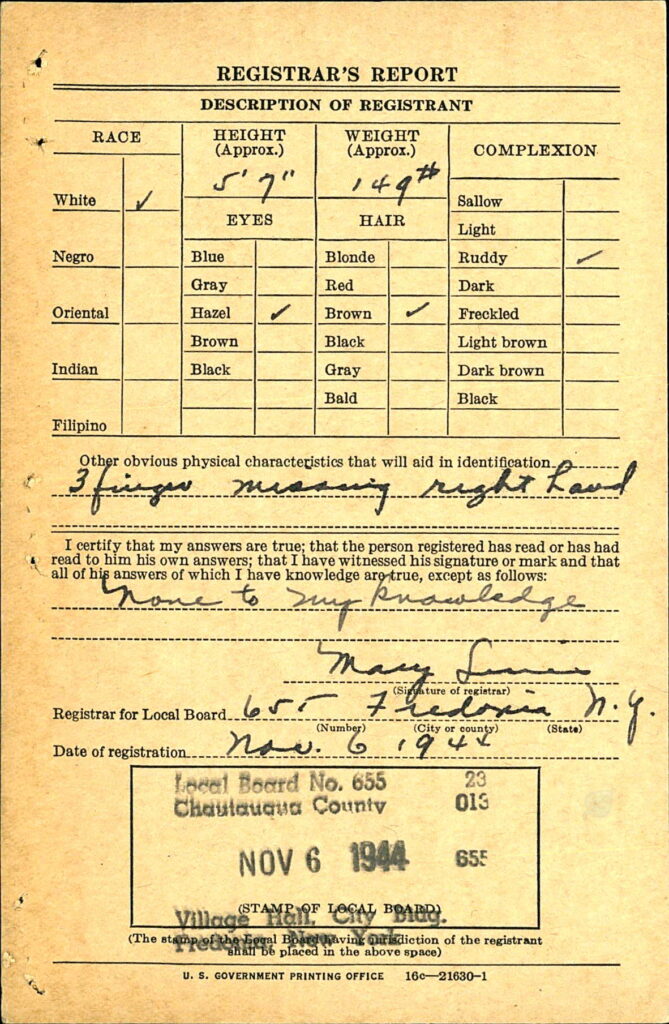 REGISTRAR'S REPORT
DESCRIPTION OF REGISTRANT
RACE
HEIGHT
(Approx.)
WEIGHT
(Approx.)
COMPLEXION
5' 7"
149#
EYES
HAIR
White ✓
Negro
Oriental
Indian
Filipino
Blue
Gray
Hazel ✓
Brown
Black
Blonde
Red
Brown ✓
Black
Gray
Bald
Sallow
Light
Ruddy ✓
Dark
Freckled
Light brown
Dark brown
Black
Other obvious physical characteristics that will aid in identification
3 finger missing right hand
I certify that my answers are true; that the person registered has read or has had
read to him his own answers; that I have witnessed his signature or mark and that
all of his answers of which I have knowledge are true, except as follows:
None to my knowledge
Mary
(Signature of registrar)
Registrar for Local Board 655 Fredonia N.Y.
(Number) (City or county) (State)
Date of registration Nov. 6 1944
Local Board No. 655 23
Chautauqua County 013
NOV 6 1944 655
(STAMP OF LOCAL BOARD)
Village Hall, City Bldg.
(The stamp of the Local Board having jurisdiction of the registrant
Fredonia, New York
shall be placed in the above space)
U. S. GOVERNMENT PRINTING OFFICE 16c—21630-1